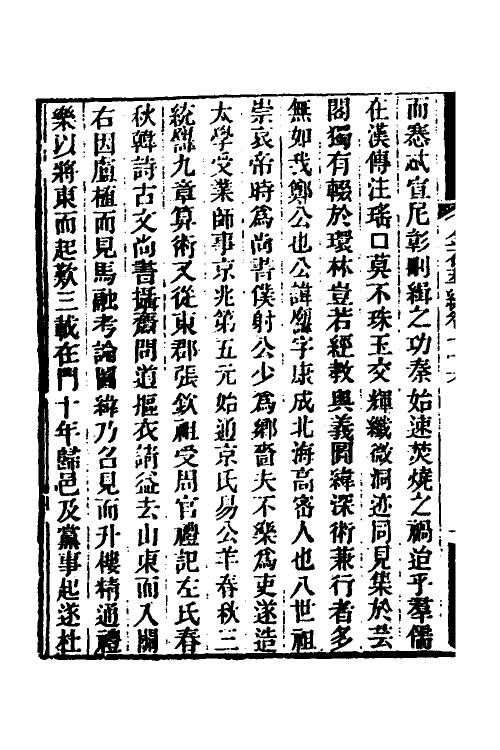 而悉甙宣尼彰刪緝之功秦始速焚燒之禍迨乎羣儒
在漢傳注瑤口莫不珠玉交輝纖微洞迹同見集於芸
閣獨有輟於環林豈若經教與義圖緯深術兼行者多
無如我鄭公也公諱字康成北海高密人也八世祖
崇哀帝時爲尚書僕射公少爲鄉嗇夫不樂爲吏遂造
太學受業師事京兆第五元始通京氏易公羊春秋三
統厤九章算術又從東郡張欽祖受周官禮記左氏春
秋韓詩古文尚書攝齋問道摳衣請益去山東而入關
右因盧植而見馬融考論圖緯乃召見而升樓精通禮
樂以將東而起歎三載在門十年歸邑及黨事起遂杜